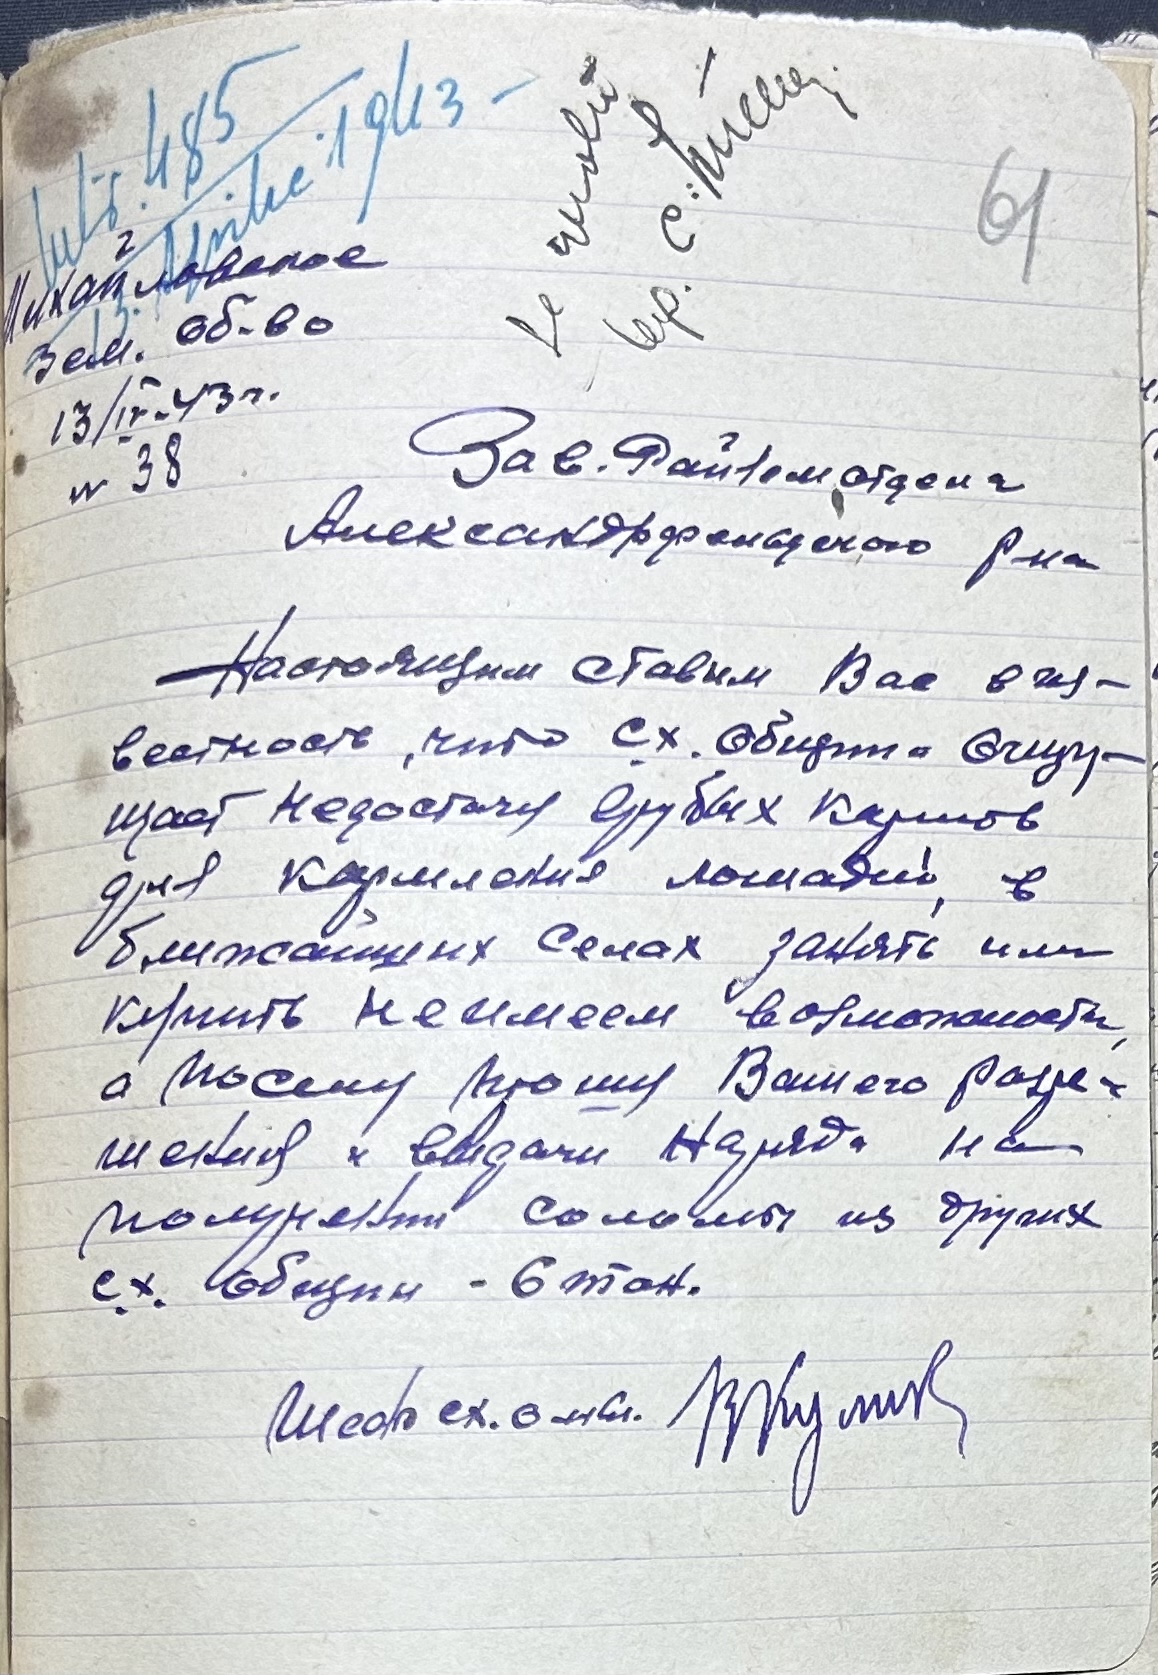 485
Aprilie 1943 -
13.
61
Михайловское
Зем. Об-во
13/IV-43 г.
№ 38
Зав. Райземотдела
Александрфельдского р на
Настоящим ставим Вас в из-
вестность, что с.х. община ощу-
щает недостачу грубых кармов
для кармления лошадий, в
ближайших селах занять или
купить не имеем возможности,
а посему прошу Вашего разре-
шения и выдачи наряда на
получения соломы из других
с.х. общин - 6 тон.
Шеф сх. общ.